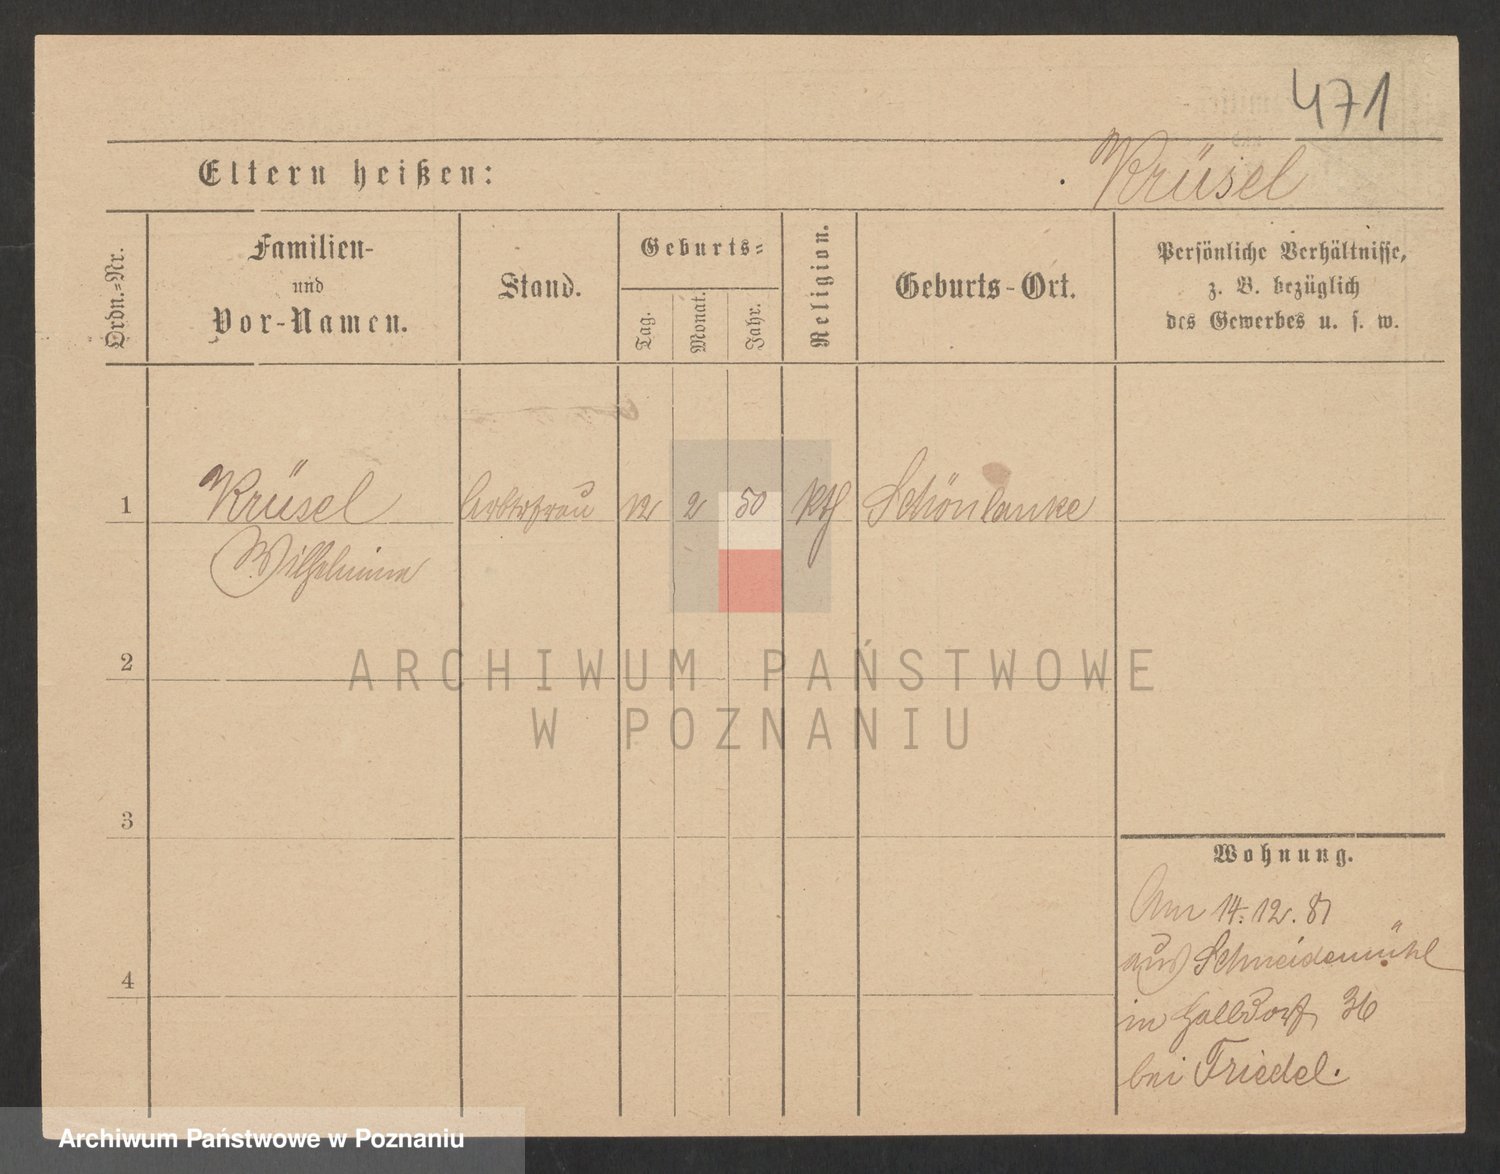 471
Eltern heißen:
Krüsel
Ordn.-Nr.
Familien-
und
Vor-Namen.
Stand.
Geburts-
Tag.
Monat.
Jahr.
Religion.
Geburts-Ort.
Persönliche Verhältnisse,
z. B. bezüglich
des Gewerbes u. s. w.
1
Krüsel Arbtrfrau 12 2 50 kth Schönlanke
Wilhelmine
2
3
4
Wohnung.
Am 14.12.81
aus Schneidemühl
in Halbdorf 36
bei Friedel.
ARCHIWUM PAŃSTWOWE
W POZNANIU
Archiwum Państwowe w Poznaniu